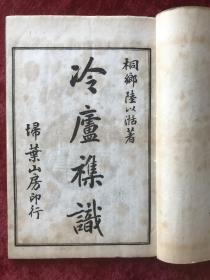 桐鄉陸以湉著
冷廬襍識
埽葉山房印行